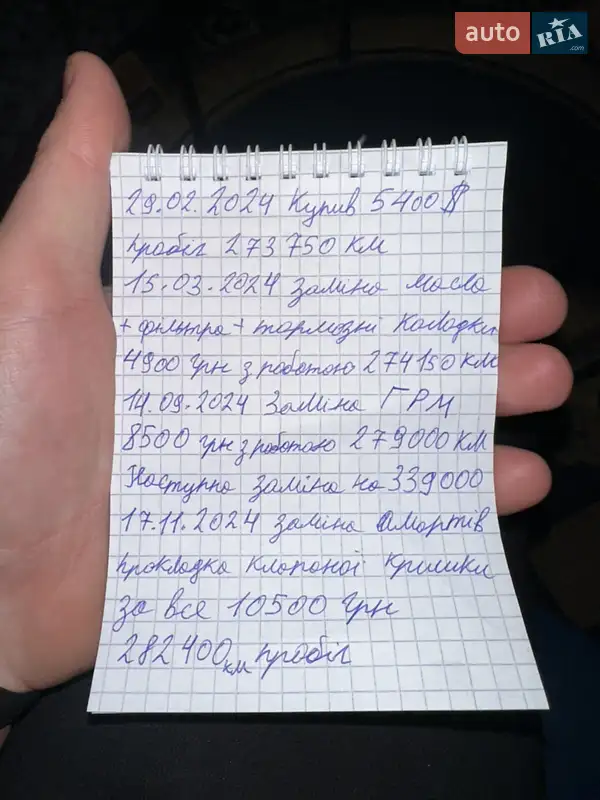 auto RIA .com
29.02.2024 Купив 5400$
пробіг 273 750 км
15.03.2024 заміна масла
+ фільтра + тормозні колодки
4900 грн з роботою 274150 км
14.09.2024 Заміна ГРМ
8500 грн з роботою 279000 км
Наступна заміна на 339000
17.11.2024 заміна амортів
прокладка клапаної кришки
за все 10500 грн
282400 км пробіг